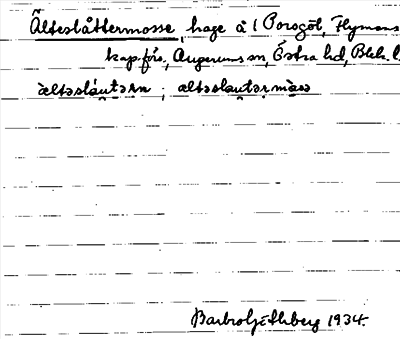 Älteslåttermosse, hage å 1 Porsgöl, Flymens
kap.förs., Augerums sn, Östra hd, Blek. l
àltəslá̀utərn ; àltəslautərmåsə
Barbro Ljethberg 1934.